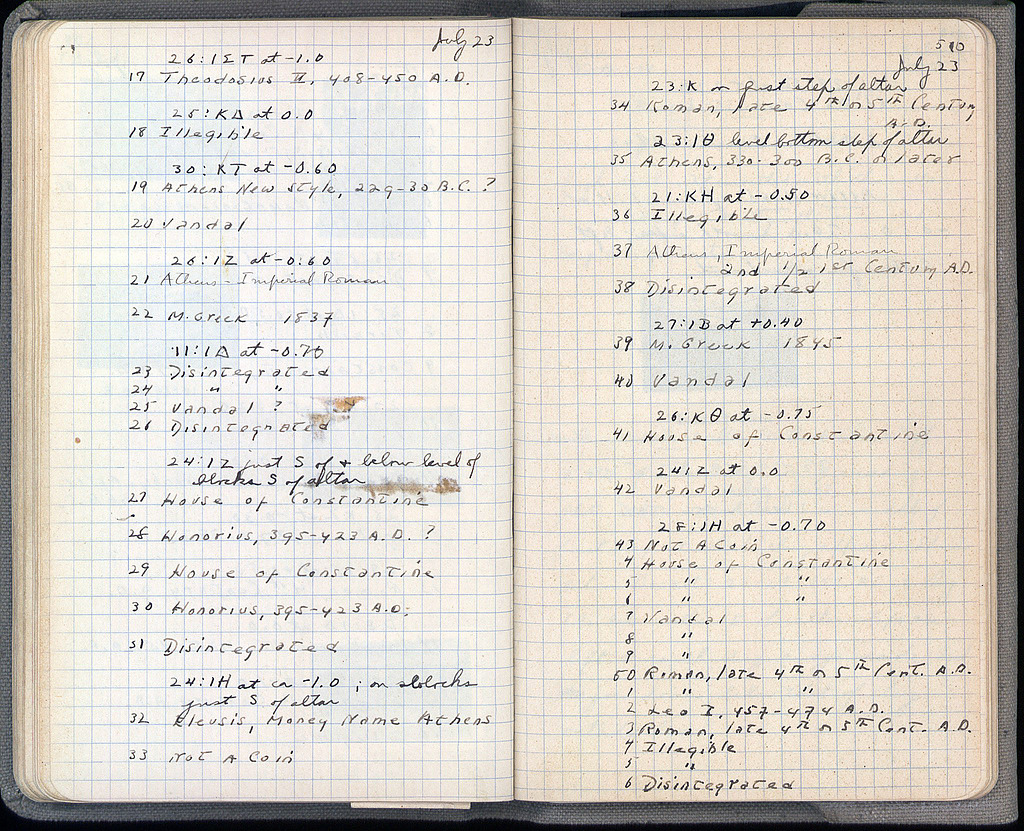 July 23
26:ΙΣΤ at -1.0
17 Theodosius II, 408-450 A.D.
25:ΚΔ at 0.0
18 Illegible
30:ΚΤ at -0.60
19 Athens New Style, 229-30 B.C. ?
20 Vandal
26:ΙΖ at -0.60
21 Athens - Imperial Roman
22 M. Greek 1837
11:ΙΔ at -0.70
23 Disintegrated
24 " "
25 Vandal ?
26 Disintegrated
24:ΙΖ just S of + below level of
blocks S of altar
27 House of Constantine
28 Honorius, 395-423 A.D. ?
29 House of Constantine
30 Honorius, 395-423 A.D.
31 Disintegrated
24:ΙΗ at ca -1.0 ; on
just S of altar
32 Eleusis, Money Name Athens
33 Not A Coin
510
July 23
23:Κ on first step of altar
34 Roman, late 4th or 5th Century
A.D.
23:ΙΘ level bottom step of altar
35 Athens, 330-300 B.C. or later
21:ΚΗ at -0.50
36 Illegible
37 Athens, Imperial Roman
2nd 1/2 1st Century A.D.
38 Disintegrated
27:ΙΒ at +0.40
39 M. Greek 1845
40 Vandal
26:ΚΘ at -0.75
41 House of Constantine
24:ΙΖ at 0.0
42 Vandal
28:ΙΗ at -0.70
43 Not A Coin
4 House of Constantine
5 " "
6 " "
7 Vandal
8 "
9 "
50 Roman, late 4th or 5th Cent. A.D.
1 " "
2 Leo I, 457-474 A.D.
3 Roman, late 4th or 5th Cent. A.D.
4 Illegible
5 "
6 Disintegrated